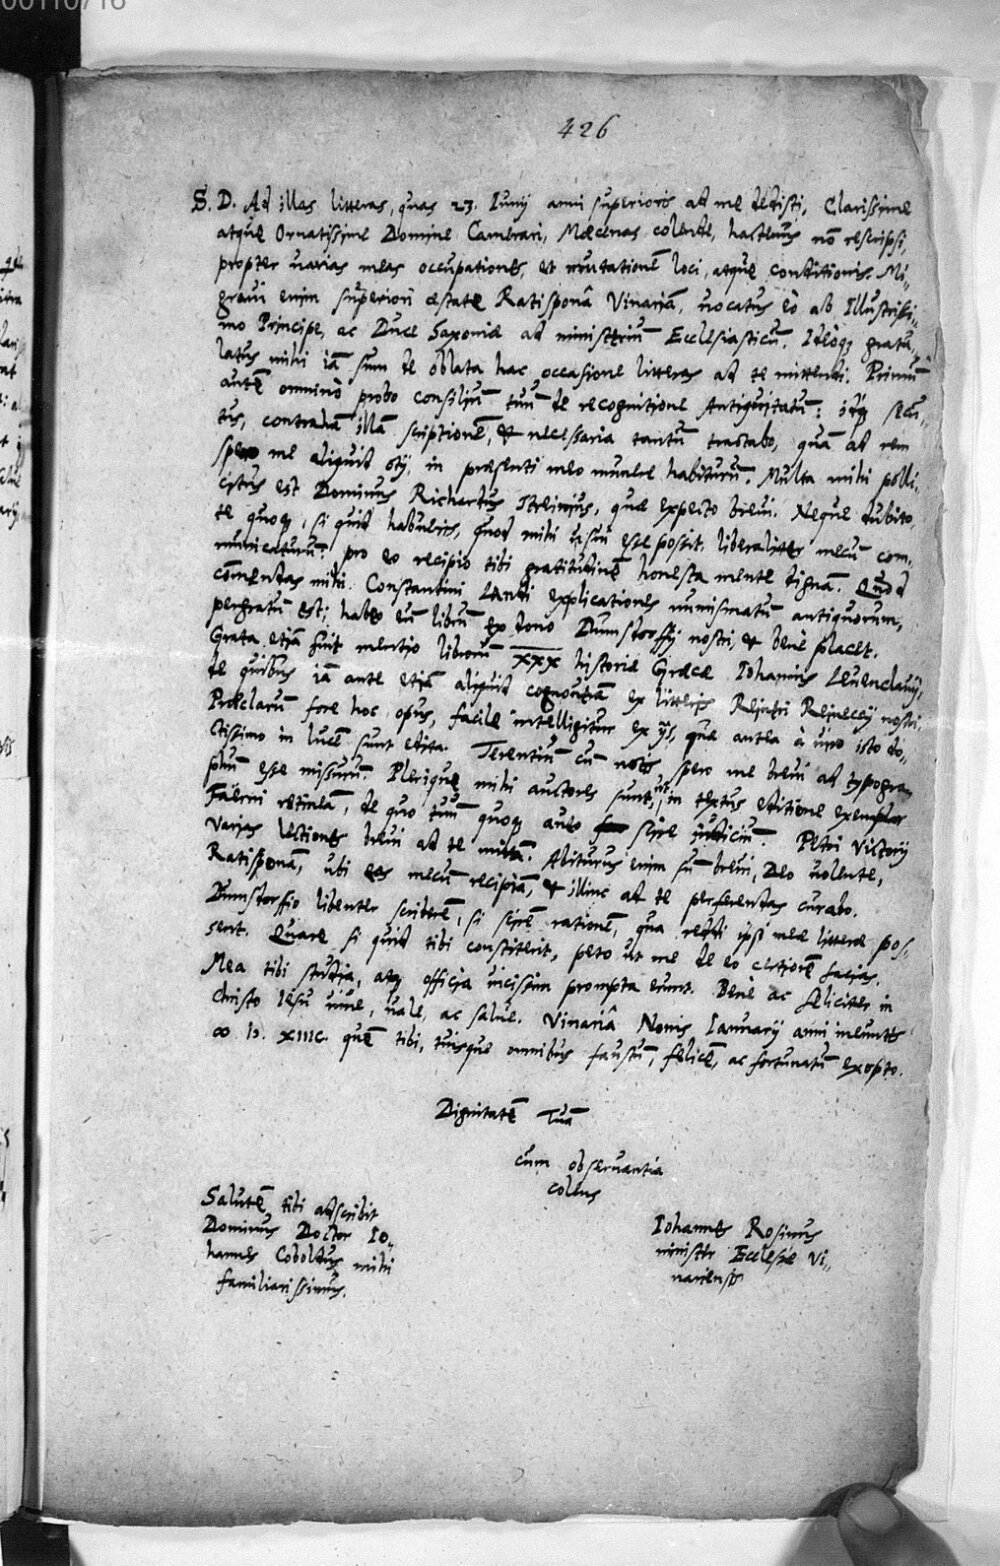 00110716
426
S. D. Ad illas litteras, quas 23. Iunij anni superioris ad me dedisti, Clarissime
atque Ornatissime Domine Camerari, Mæcenas colende, hactenus nō rescripsi,
propter uarias meas occupationes, et mutationē loci, atque conditionis. Mi-
graui enim superiori æstate Ratisponâ Vinariā, uocatus eò ab Illustrissi-
mo Principe, ac Duce Saxoniæ ad ministeriū Ecclesiasticū. Ideoq; gratu-
latus mihi iā sum de oblata hac occasione litteras ad te mittendi. Primū
autē omninò probo consiliū tuū de recognitione Antiquitatū: itaq; secu-
tus, contrahā illā scriptionē, & necessaria tantū tractabo, quā ad rem
spero me aliquid otij, in præsenti meo munere habiturū. Multa mihi polli-
citus est Dominus Richardus Streinius, quæ expecto breui. Neque dubito,
te quoq;, si quid habueris, quod mihi usui esse possit, liberaliter mecū com-
municaturū: pro eo recipio tibi gratitudinē honesta mente dignā. Quod
cōmendas mihi Constantini Landi explicationes numismatū antiquorum,
pergratū est; habeo eū librū ex dono Dumstorffij nostri, & benè placet.
Grata etiā fuit mentio librorū XXX historiæ Græcæ Iohannis Leuenclauij,
de quibus iā ante etiā aliquid cognoueram ex litteris Reineri Reineccij nostri.
Præclarū fore hoc opus, facile intelligitur ex ijs, quæ antea à uiro isto do-
ctissimo in lucē sunt edita. Terentiū cū notis spero me breui ad typogra-
phū esse missurū. Plerique mihi auctores sunt, ut in textus editione exemplar
Faerni retineā, de quo tuū quoq; aueo scire iudiciū. Petri Victorij
Varias lectiones breui ad te mittā. Abiturus enim sū breui, Deo uolente,
Ratisponā, ubi eas mecū recipiā, & illinc ad te perferendas curabo.
Dumstorffio libenter scriberē, si scirē rationē, qua reddi ipsi meæ litteræ pos-
sent. Quare si quid tibi constiterit, peto ut me de eo certiorē facias.
Mea tibi studia, atq; officia uicissim prompta erunt. Benè ac feliciter in
Christo Iesu uiue, uale, ac salue. Vinariâ Nonis Ianuarij anni ineuntis
∞ D. XIIIC quē tibi, tuisque omnibus faustū, felicē, ac fortunatū exopto.
Dignitatē Tuā
cum obseruantia
colens
Iohannes Rosinus
minister Ecclesiæ Vi-
nariensis
Salutē tibi adscribit
Dominus Doctor Io-
hannes Coboldus mihi
familiarissimus.